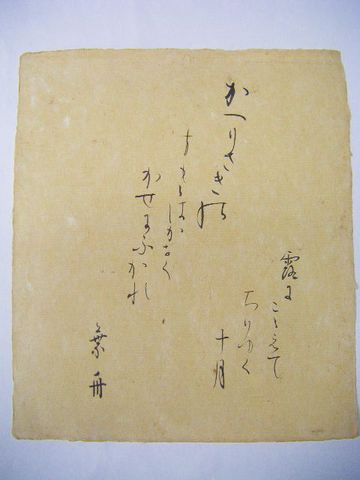 かへりさきの
すもゝは
しろく
かせにふかれ
露に
こゝえて
ちりゆく
十月
葉舟